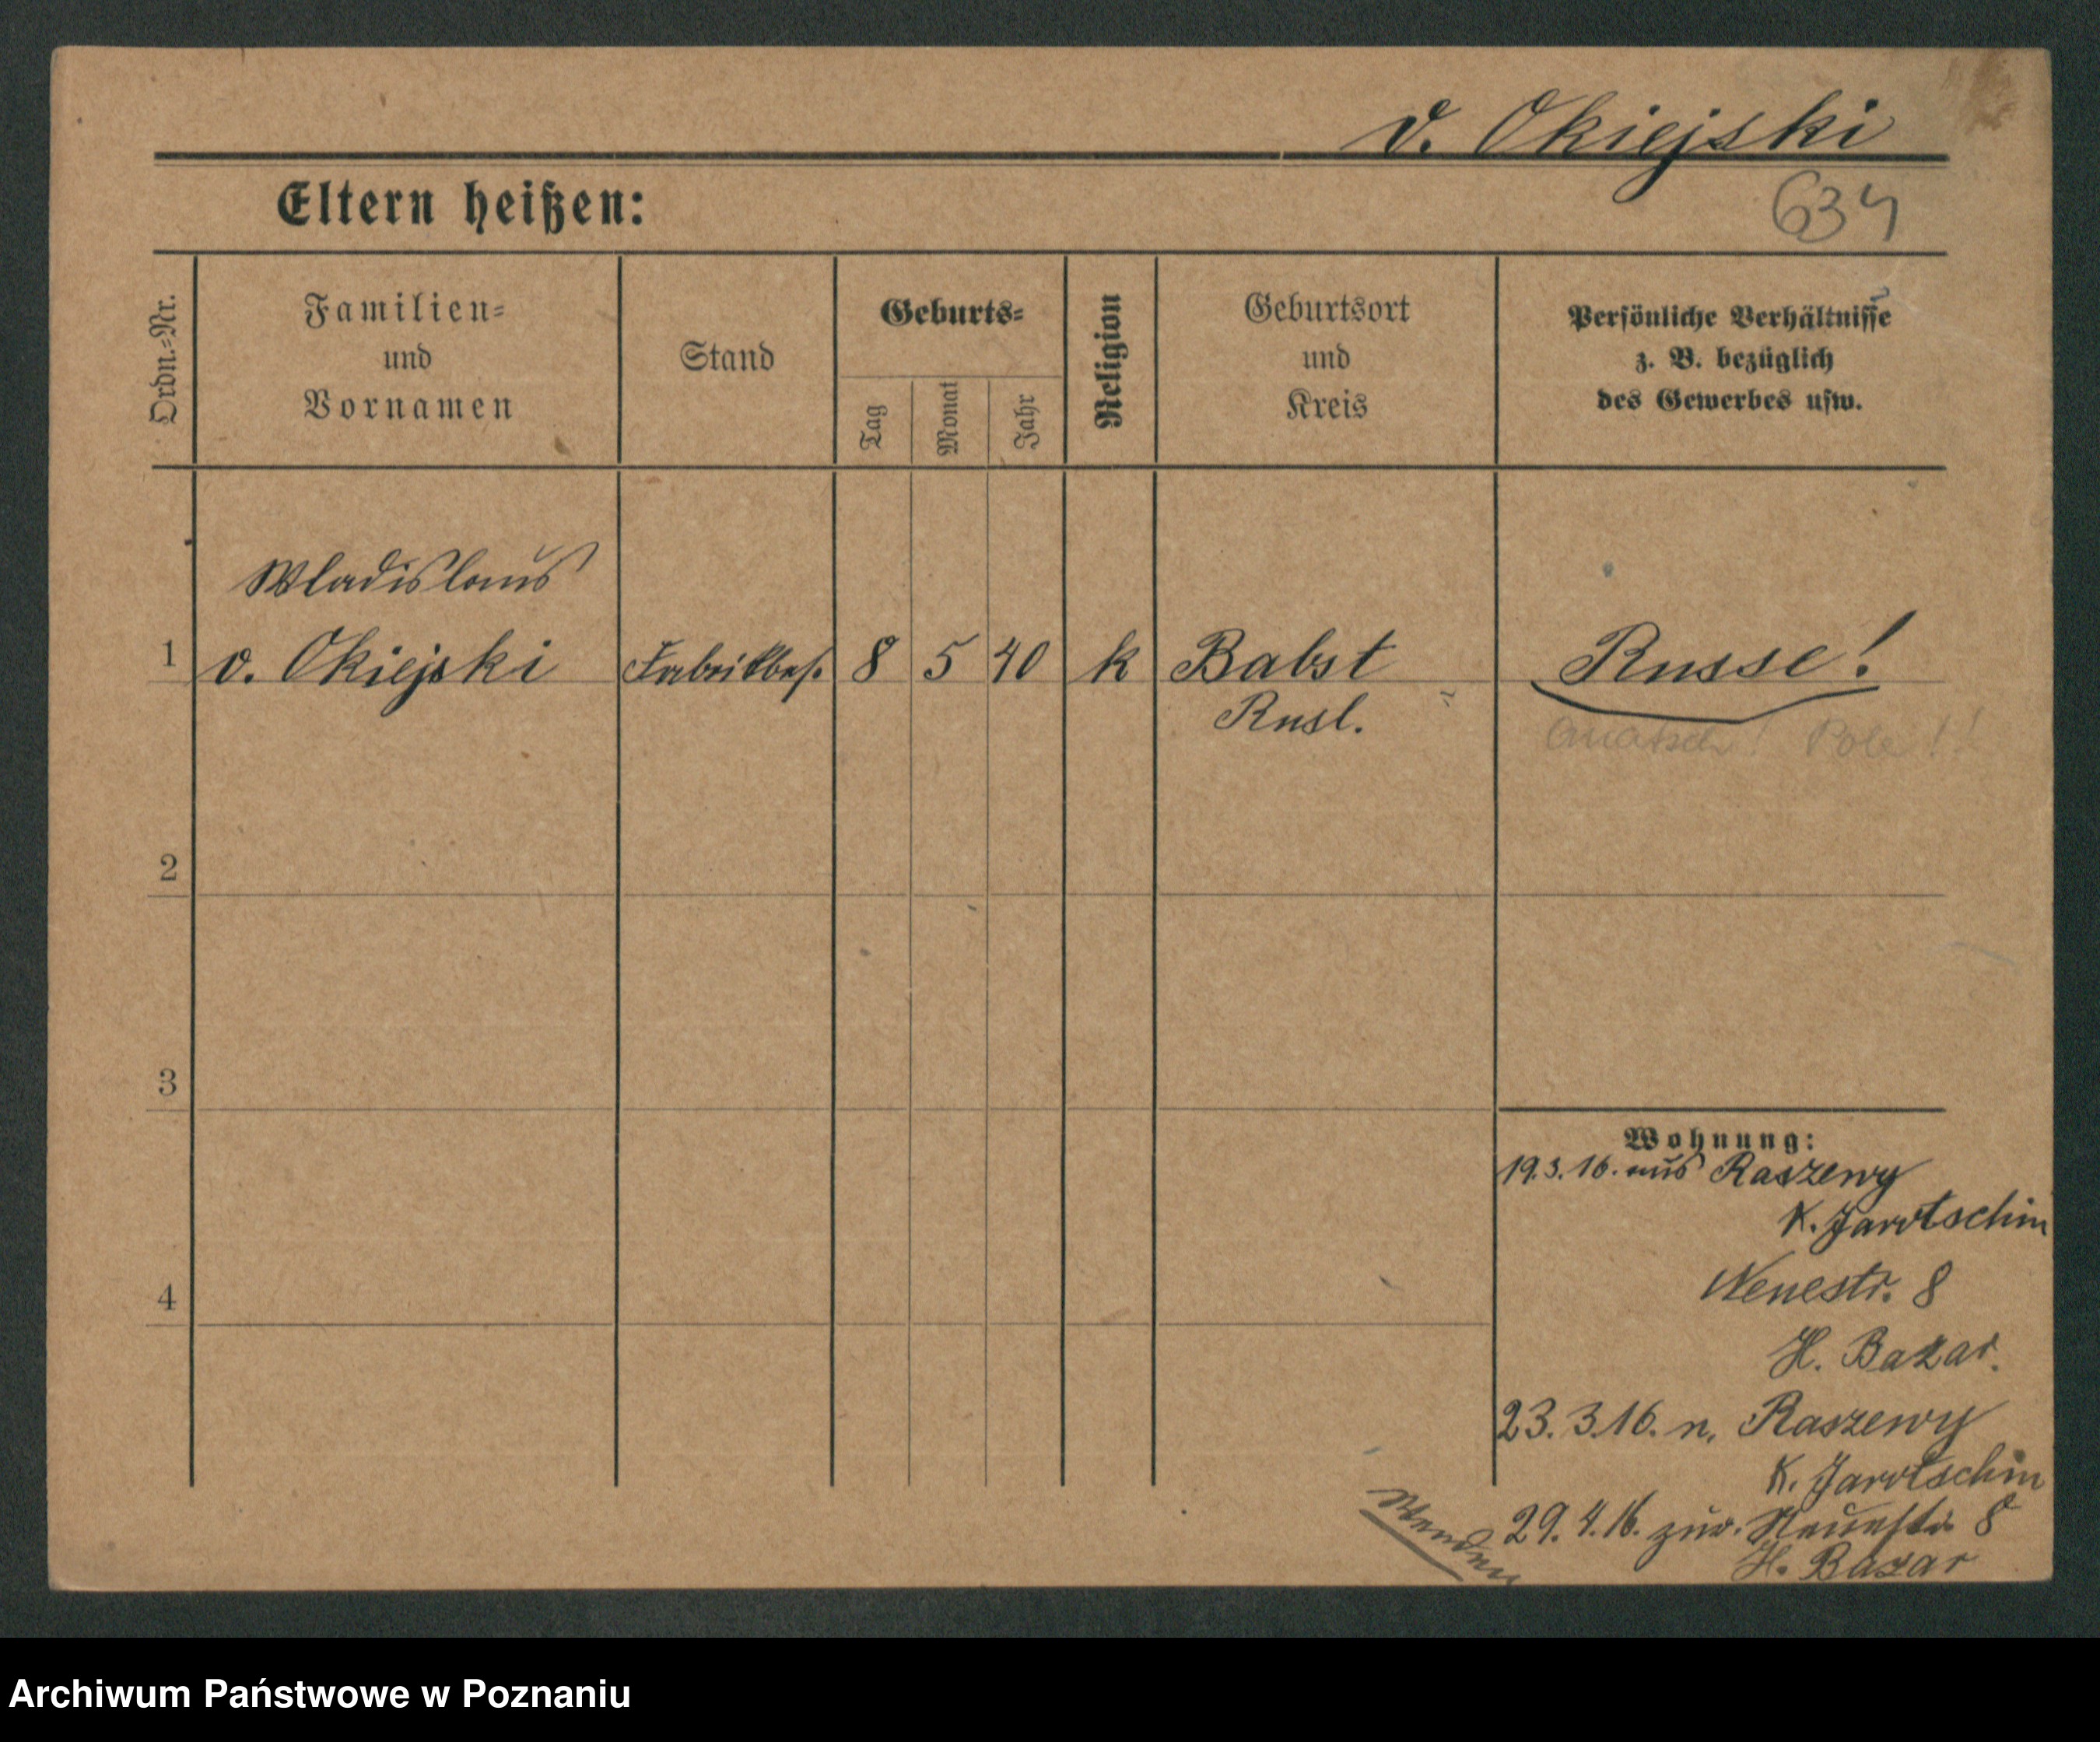 v. Okiejski
Eltern heißen:
634
Ordn.-Nr.
Familien-
und
Vornamen
Stand
Geburts-
Tag
Monat
Jahr
Religion
Geburtsort
und
Kreis
Persönliche Verhältnisse
z. B. bezüglich
des Gewerbes usw.
Wladislaus
1 v. Okiejski Fabrikbes. 8 5 40 k Babst Russe!
Rusl.
Quatsch! Pole!!
2
3
4
Wohnung:
19.3.16. aus Raszewy
K. Jarotschin
Neuestr. 8
H. Bazar.
23.3.16. n. Raszewy
K. Jarotschin
29.4.16. zur. Neuestr. 8
H. Bazar
Wenden
Archiwum Państwowe w Poznaniu